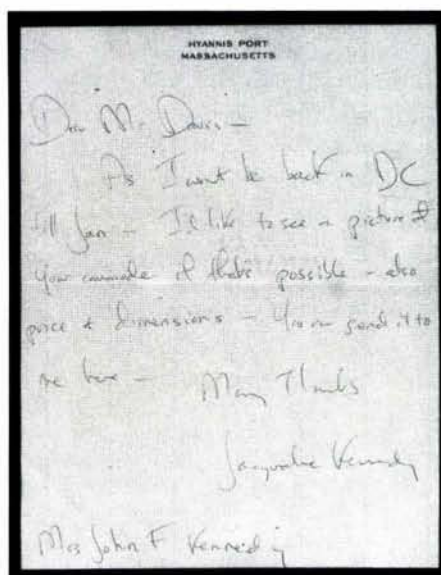 HYANNIS PORT
MASSACHUSETTS
Dear Mr. Davis —
As I wont be back in DC
till Jan — I'd like to see a picture of
your commode if that's possible — also
price & dimensions — You can send it to
me here — Many Thanks
Jacqueline Kennedy
Mrs John F Kennedy